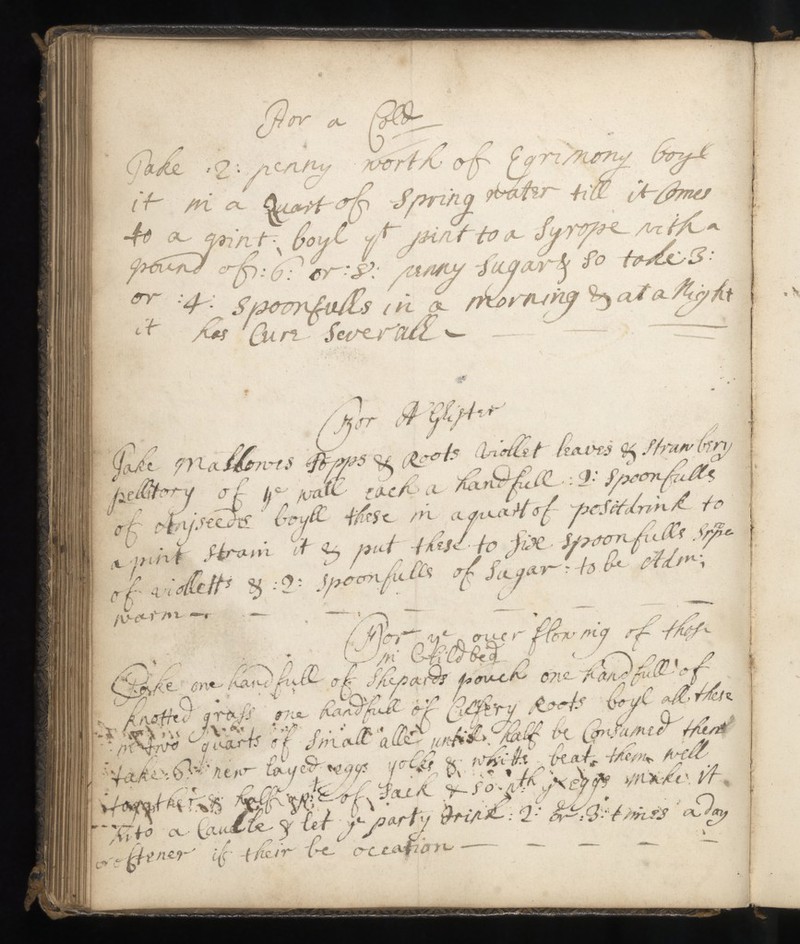 For a Cold
Take :2: penny worth of Egrimony boyl
it in a Quart of Spring water till it Comes
to a pint: boyl yt pint to a Syrope with a
pound of :6: or :8: penny Sugar & so take 3:
or :4: Spoonfulls in a morning & at a Night
it has Cure Severall
For A Glister
Take Mallowes Topps & Roots Viollet leaves & Strawbery
pellitory of ye wall each a handfull :2: Spoonfulls
of Anjseeds boyll these in a quart of positdrink to
a pint strain it & put these to Six Spoonfulls
of violetts & :2: Spoonfulls of Sugar: to be Adm:
warm
For ye over flowing of those
in Childbed
Take one handfull of Shepards pouch one handfull of
knotted grass one handfull of Roots boyl all these
in two quarts of Small alle untill half be Consumed then
take :6: new layed eggs yolks & whitts beat them well
together & half a pt of Sack & so wth ye eggs make it
into a Caudle & let ye party drink :2: or :3: times a day
or oftener if their be occation